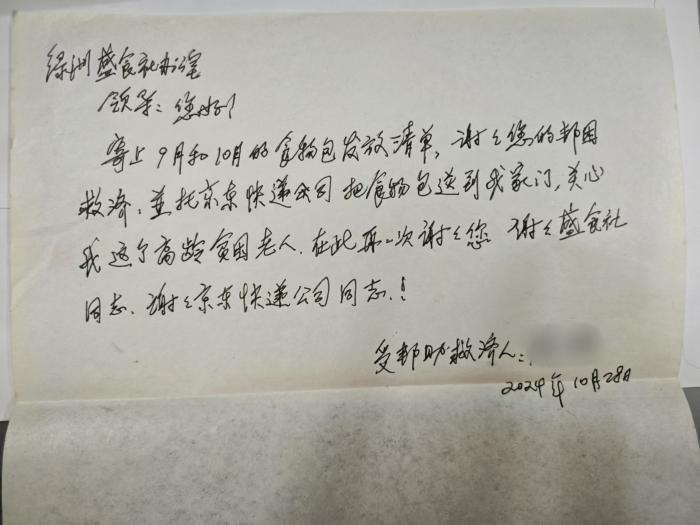 绿洲盛食社办公室
领导：您好！
寄上9月和10月的食物包发放清单，谢々您的邦困
救济，并托京东快递公司把食物包送到我家门，关心
我这个高龄贫困老人，在此再一次谢々您 谢々盛食社
同志，谢々京东快递公司同志！
受邦助救济人：
2024年10月28日